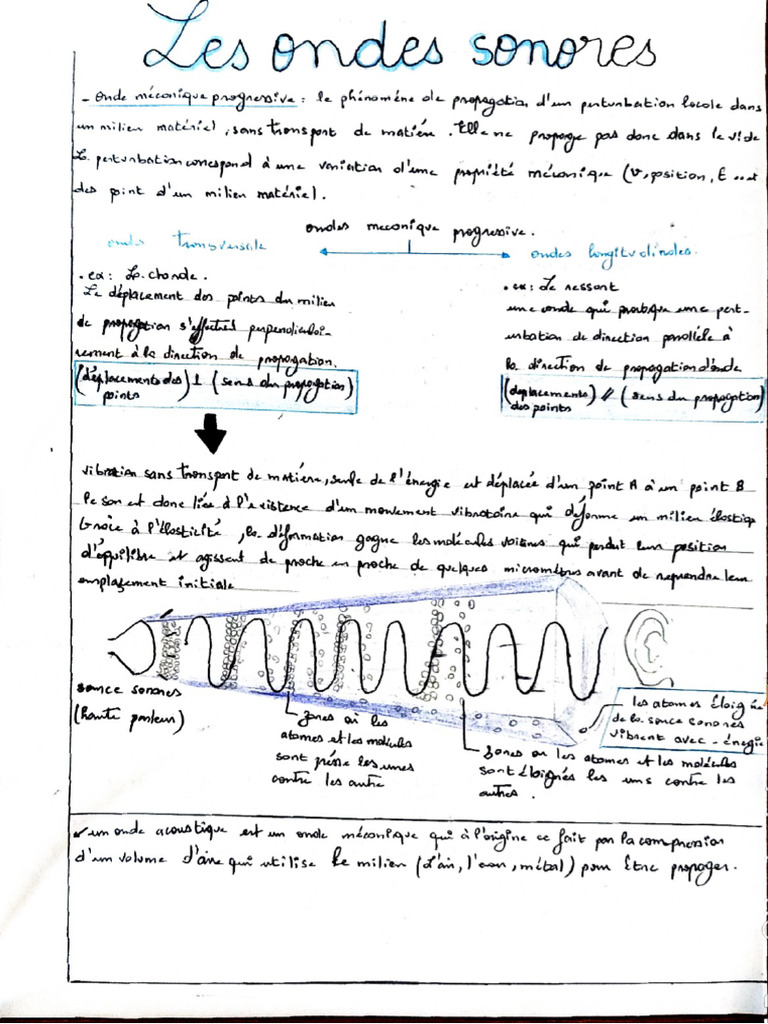 Les ondes sonores
- onde mécanique progressive : le phénomène de propagation d'un perturbation locale dans
un milieu matériel, sans transport de matière. Elle ne propage pas donc dans le vide
La perturbation correspond à une variation d'une propriété mécanique (v, position, E ... et
des point d'un milieu matériel.
ondes mecanique progressive.
ondes transversale
ondes longitudinales.
. ex : La chorde.
Le déplacement des points du milieu
de propagation s'effectue perpendiculai-
rement à la direction de propagation.
(déplacements des points) ⊥ (sens du propagation)
. ex : Le ressort
une onde qui provoque une pert-
urbation de direction parallèle à
la direction de propagation d'onde
(deplacements des points) // (sens du propagation)
vibration sans transport de matière, seule de l'énergie est déplacée d'un point A à un point B
Le son est donc liée à l'existence d'un mouvement vibratoire qui déforme un milieu élastique
Grâce à l'élasticité, la déformation gagne les molécules voisines qui perdent leur position
d'équilibre et agissent de proche en proche de quelques micromètres avant de reprendre leur
emplacement initiale
source sonores
(haute parleur)
zones où les
atomes et les molécules
sont presse les unes
contre les autre
zones ou les atomes et les molécules
sont éloignés les uns contre les
autres.
les atomes éloigné
de la source sonores
vibrent avec - énergie
✓ un onde acoustique est un onde mécanique qui à l'origine ce fait par la compression
d'un volume d'aire qui utilise le milieu (l'air, l'eau, métal) pour être propager.